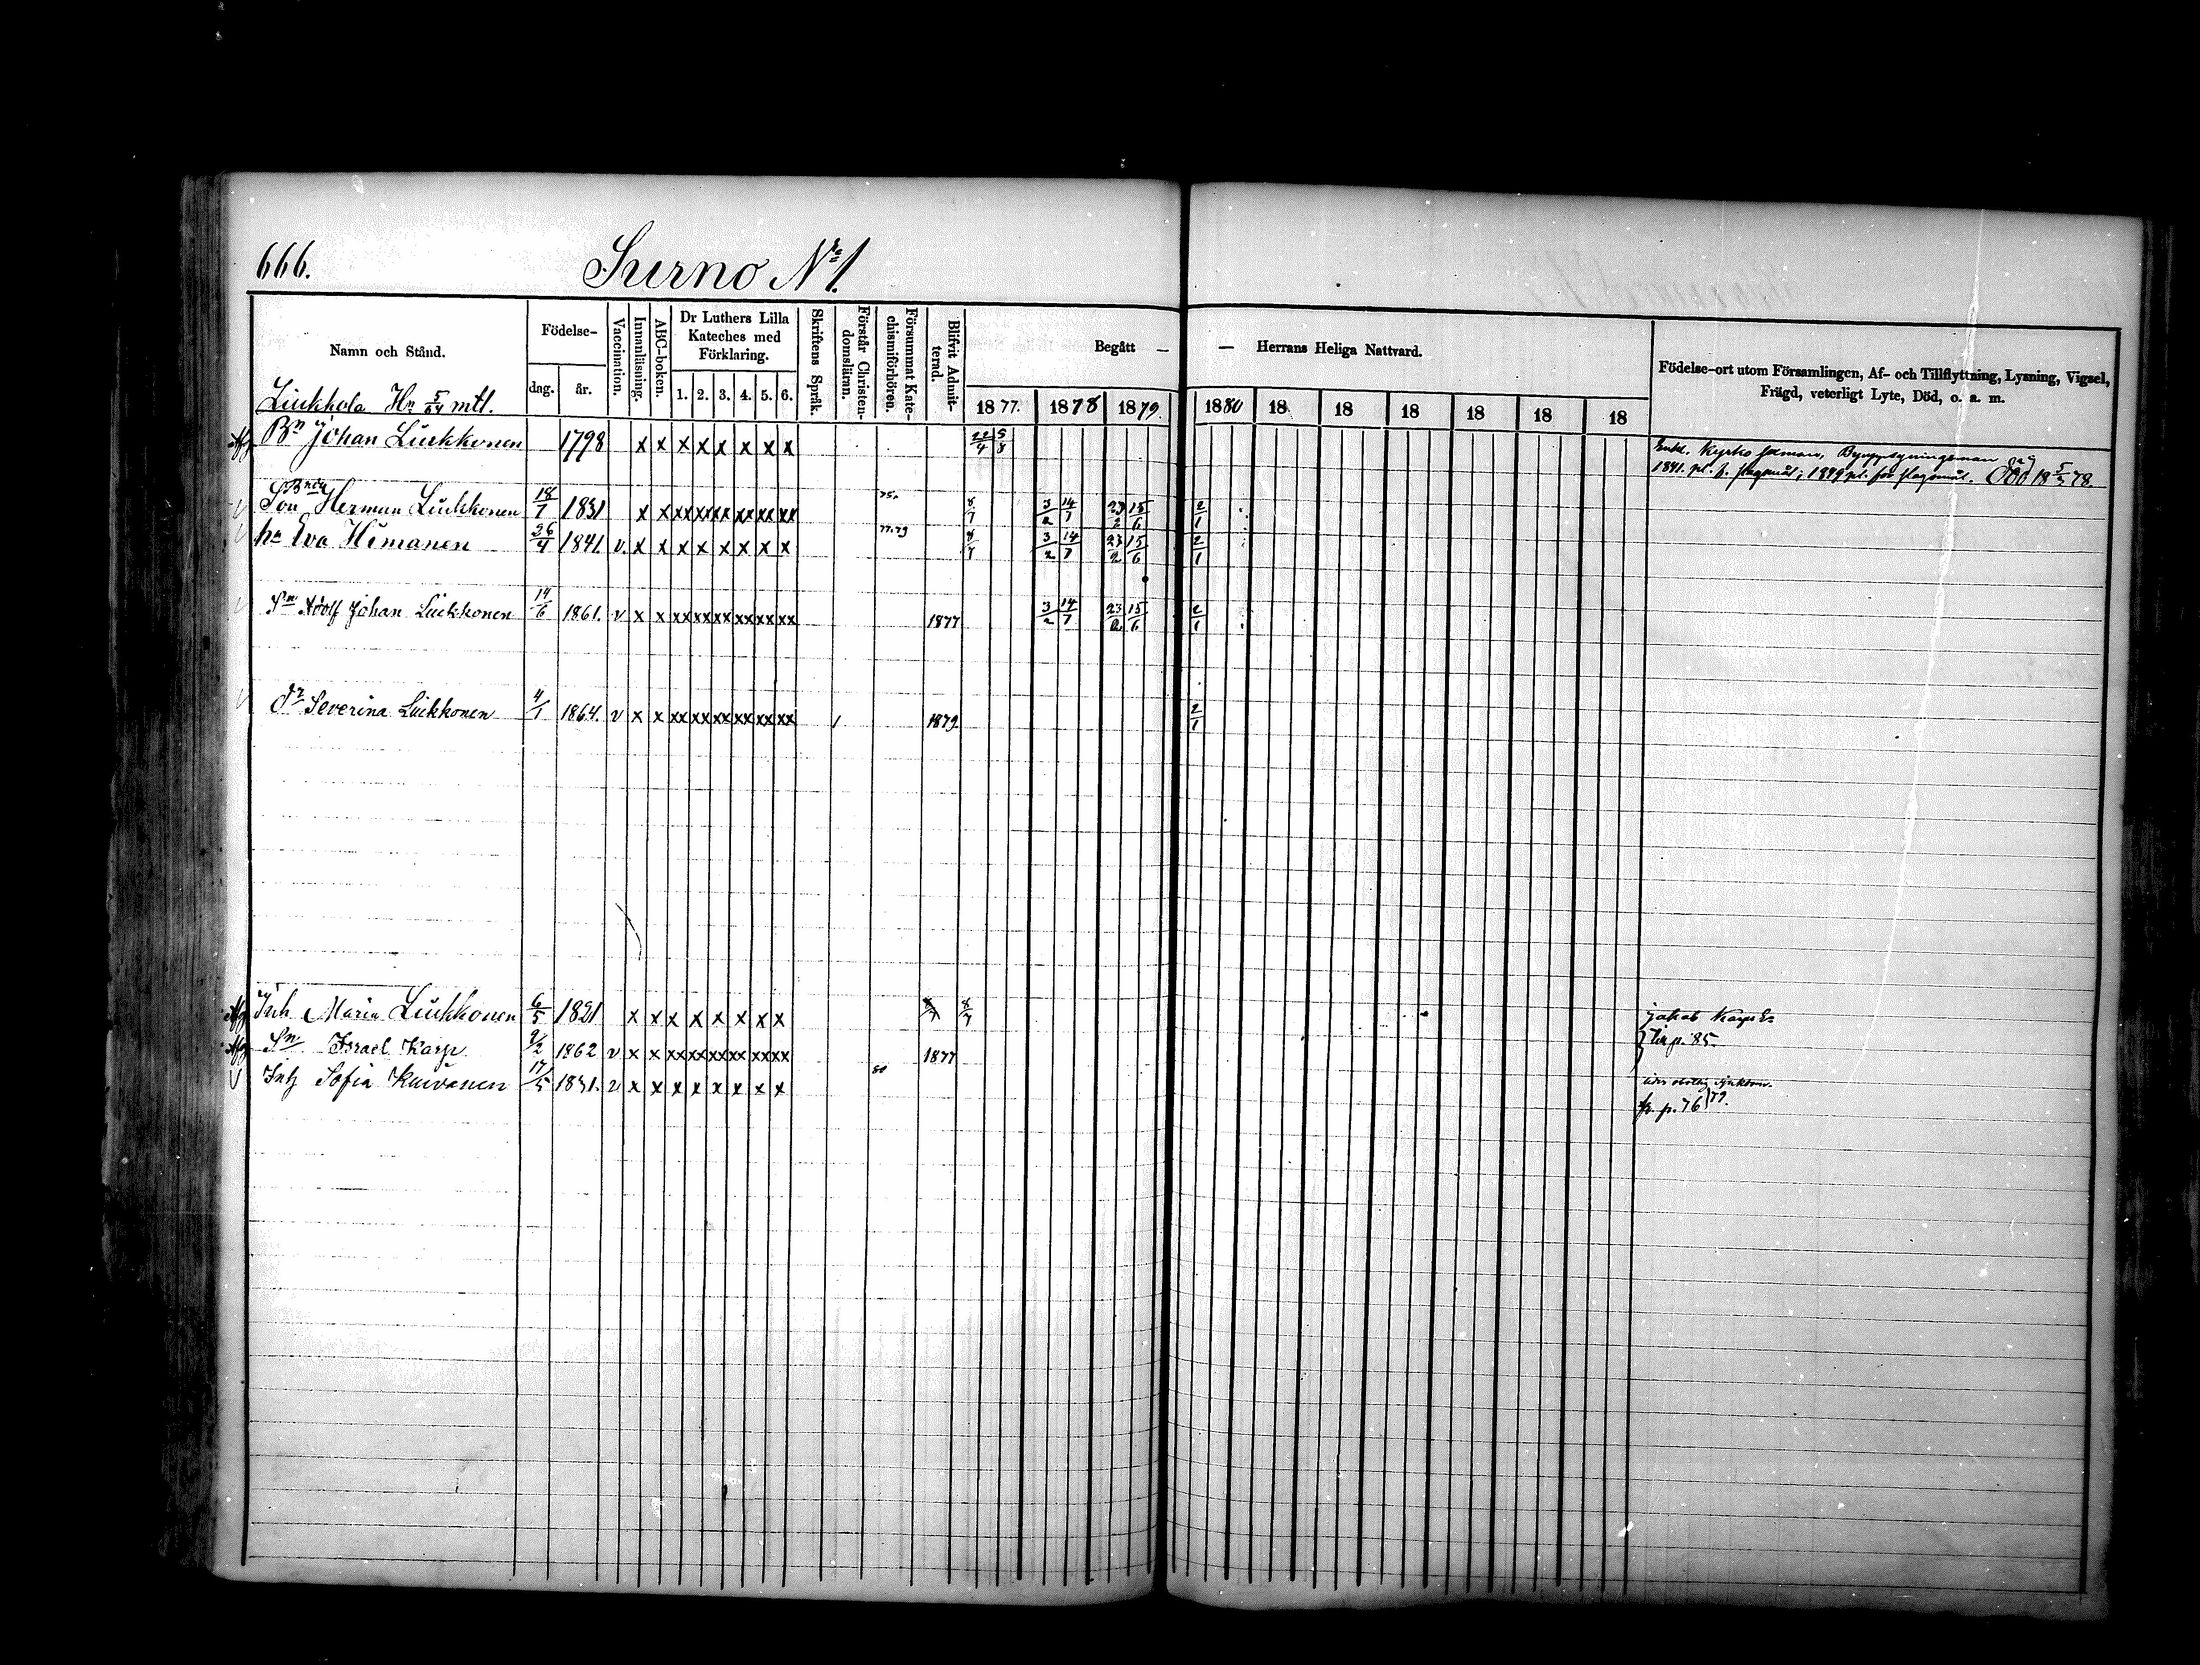 666.
Surno No 1.
Namn och Stånd.
Födelse-
dag.
år.
Vaccination.
Innanläsning.
ABC-boken.
Dr Luthers Lilla
Kateches med
Förklaring.
1. 2. 3. 4. 5. 6.
Skriftens Språk.
Förstår Christen-
domsläran.
Försummat Kate-
chismiförhören.
Blifvit Admit-
terad.
Begått — — Herrans Heliga Nattvard.
1877. 1878 1879. 1880 18 18 18 18 18 18
Födelse-ort utom Församlingen, Af- och Tillflyttning, Lysning, Vigsel,
Frägd, veterligt Lyte, Död, o. s. m.
Liukkola Hn 5/64 mtl.
Bn Johan Liukkonen 1798 x x x x x x x x 22/4 5/8
Död 18 5/3 78.
Bnden
Son Herman Liukkonen 18/7 1831 x x xx xx xx xx xx xx 75. 8/7 3/2 14/7 23/2 15/6 2/1
hu Eva Himanen 26/4 1841. v. x x x x x x x x 77.79 8/7 3/2 14/7 23/2 15/6 2/1
Sn Adolf Johan Liukkonen 14/6 1861. v x x xx xx xx xx xx xx 1877 3/2 14/7 23/2 15/6 2/1
Dr Severina Liukkonen 4/1 1864. v x x xx xx xx xx xx xx 1 1879 2/1
Inh Maria Liukkonen 6/5 1821 x x x x x x x x 8/7 8/7 Jakob Karps E:
Sn Israel Karp 9/2 1862 v x x xx xx xx xx xx xx 1877 p. 85.
Inh Sofia Kuivanen 17/5 1831. v x x x x x x x x 80
fr. p. 76 79.